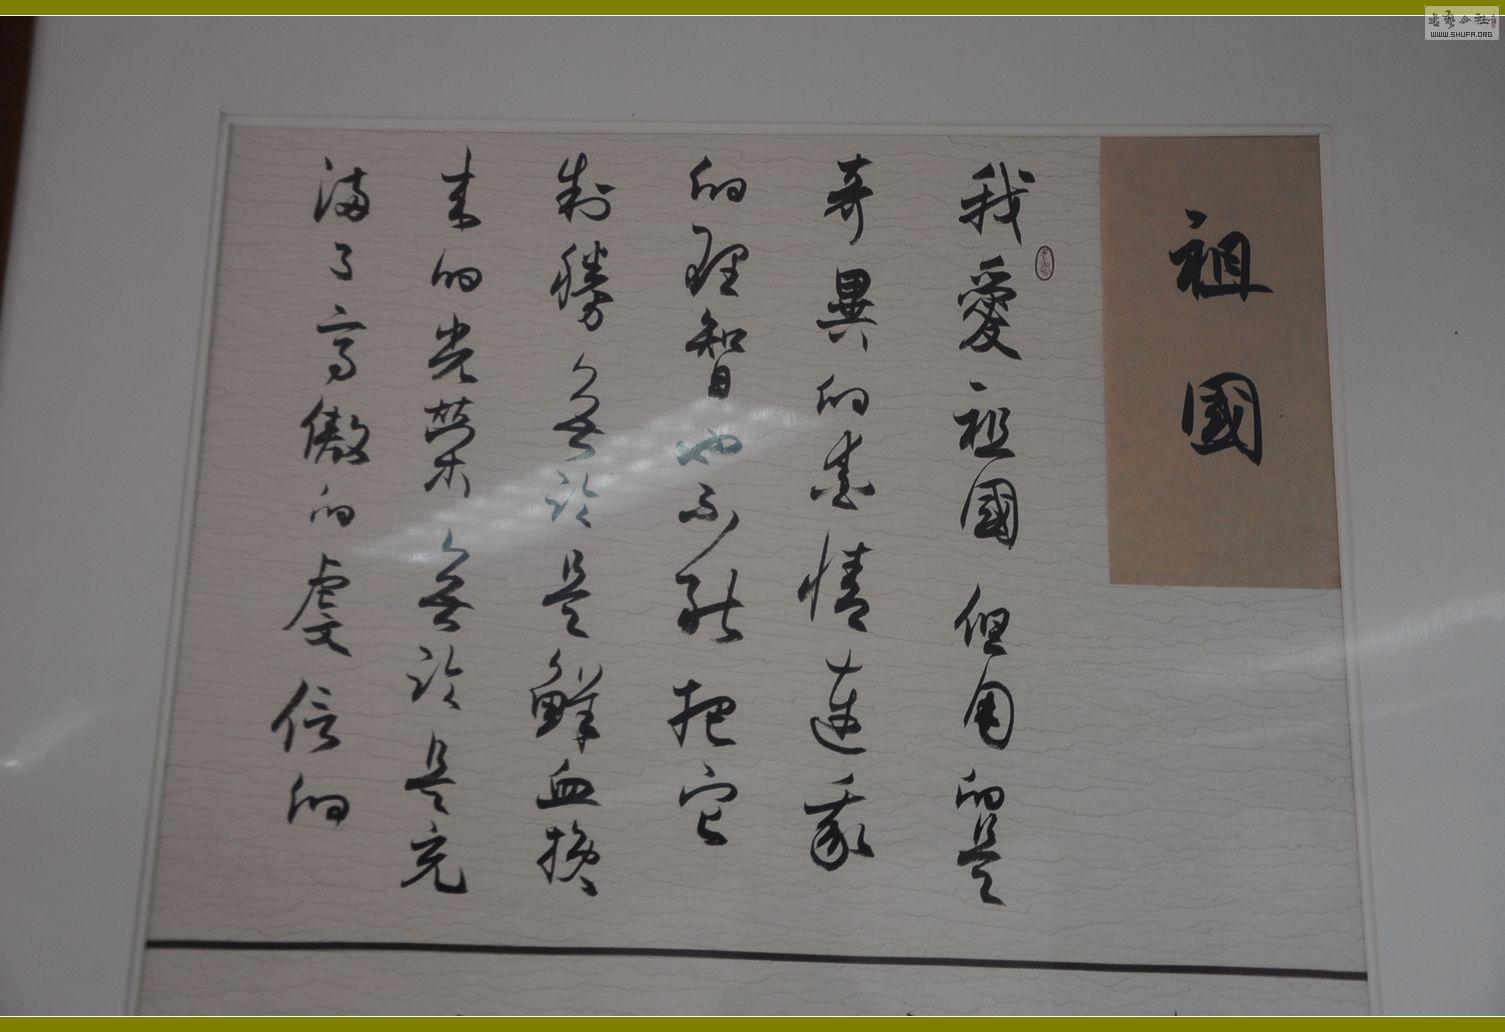 祖國
我愛祖國但用的是
奇異的愛情連我
的理智也不能把它
制勝無論是鮮血換
來的光榮無論是充
滿了高傲的虔信的
WWW.SHUFA.ORG